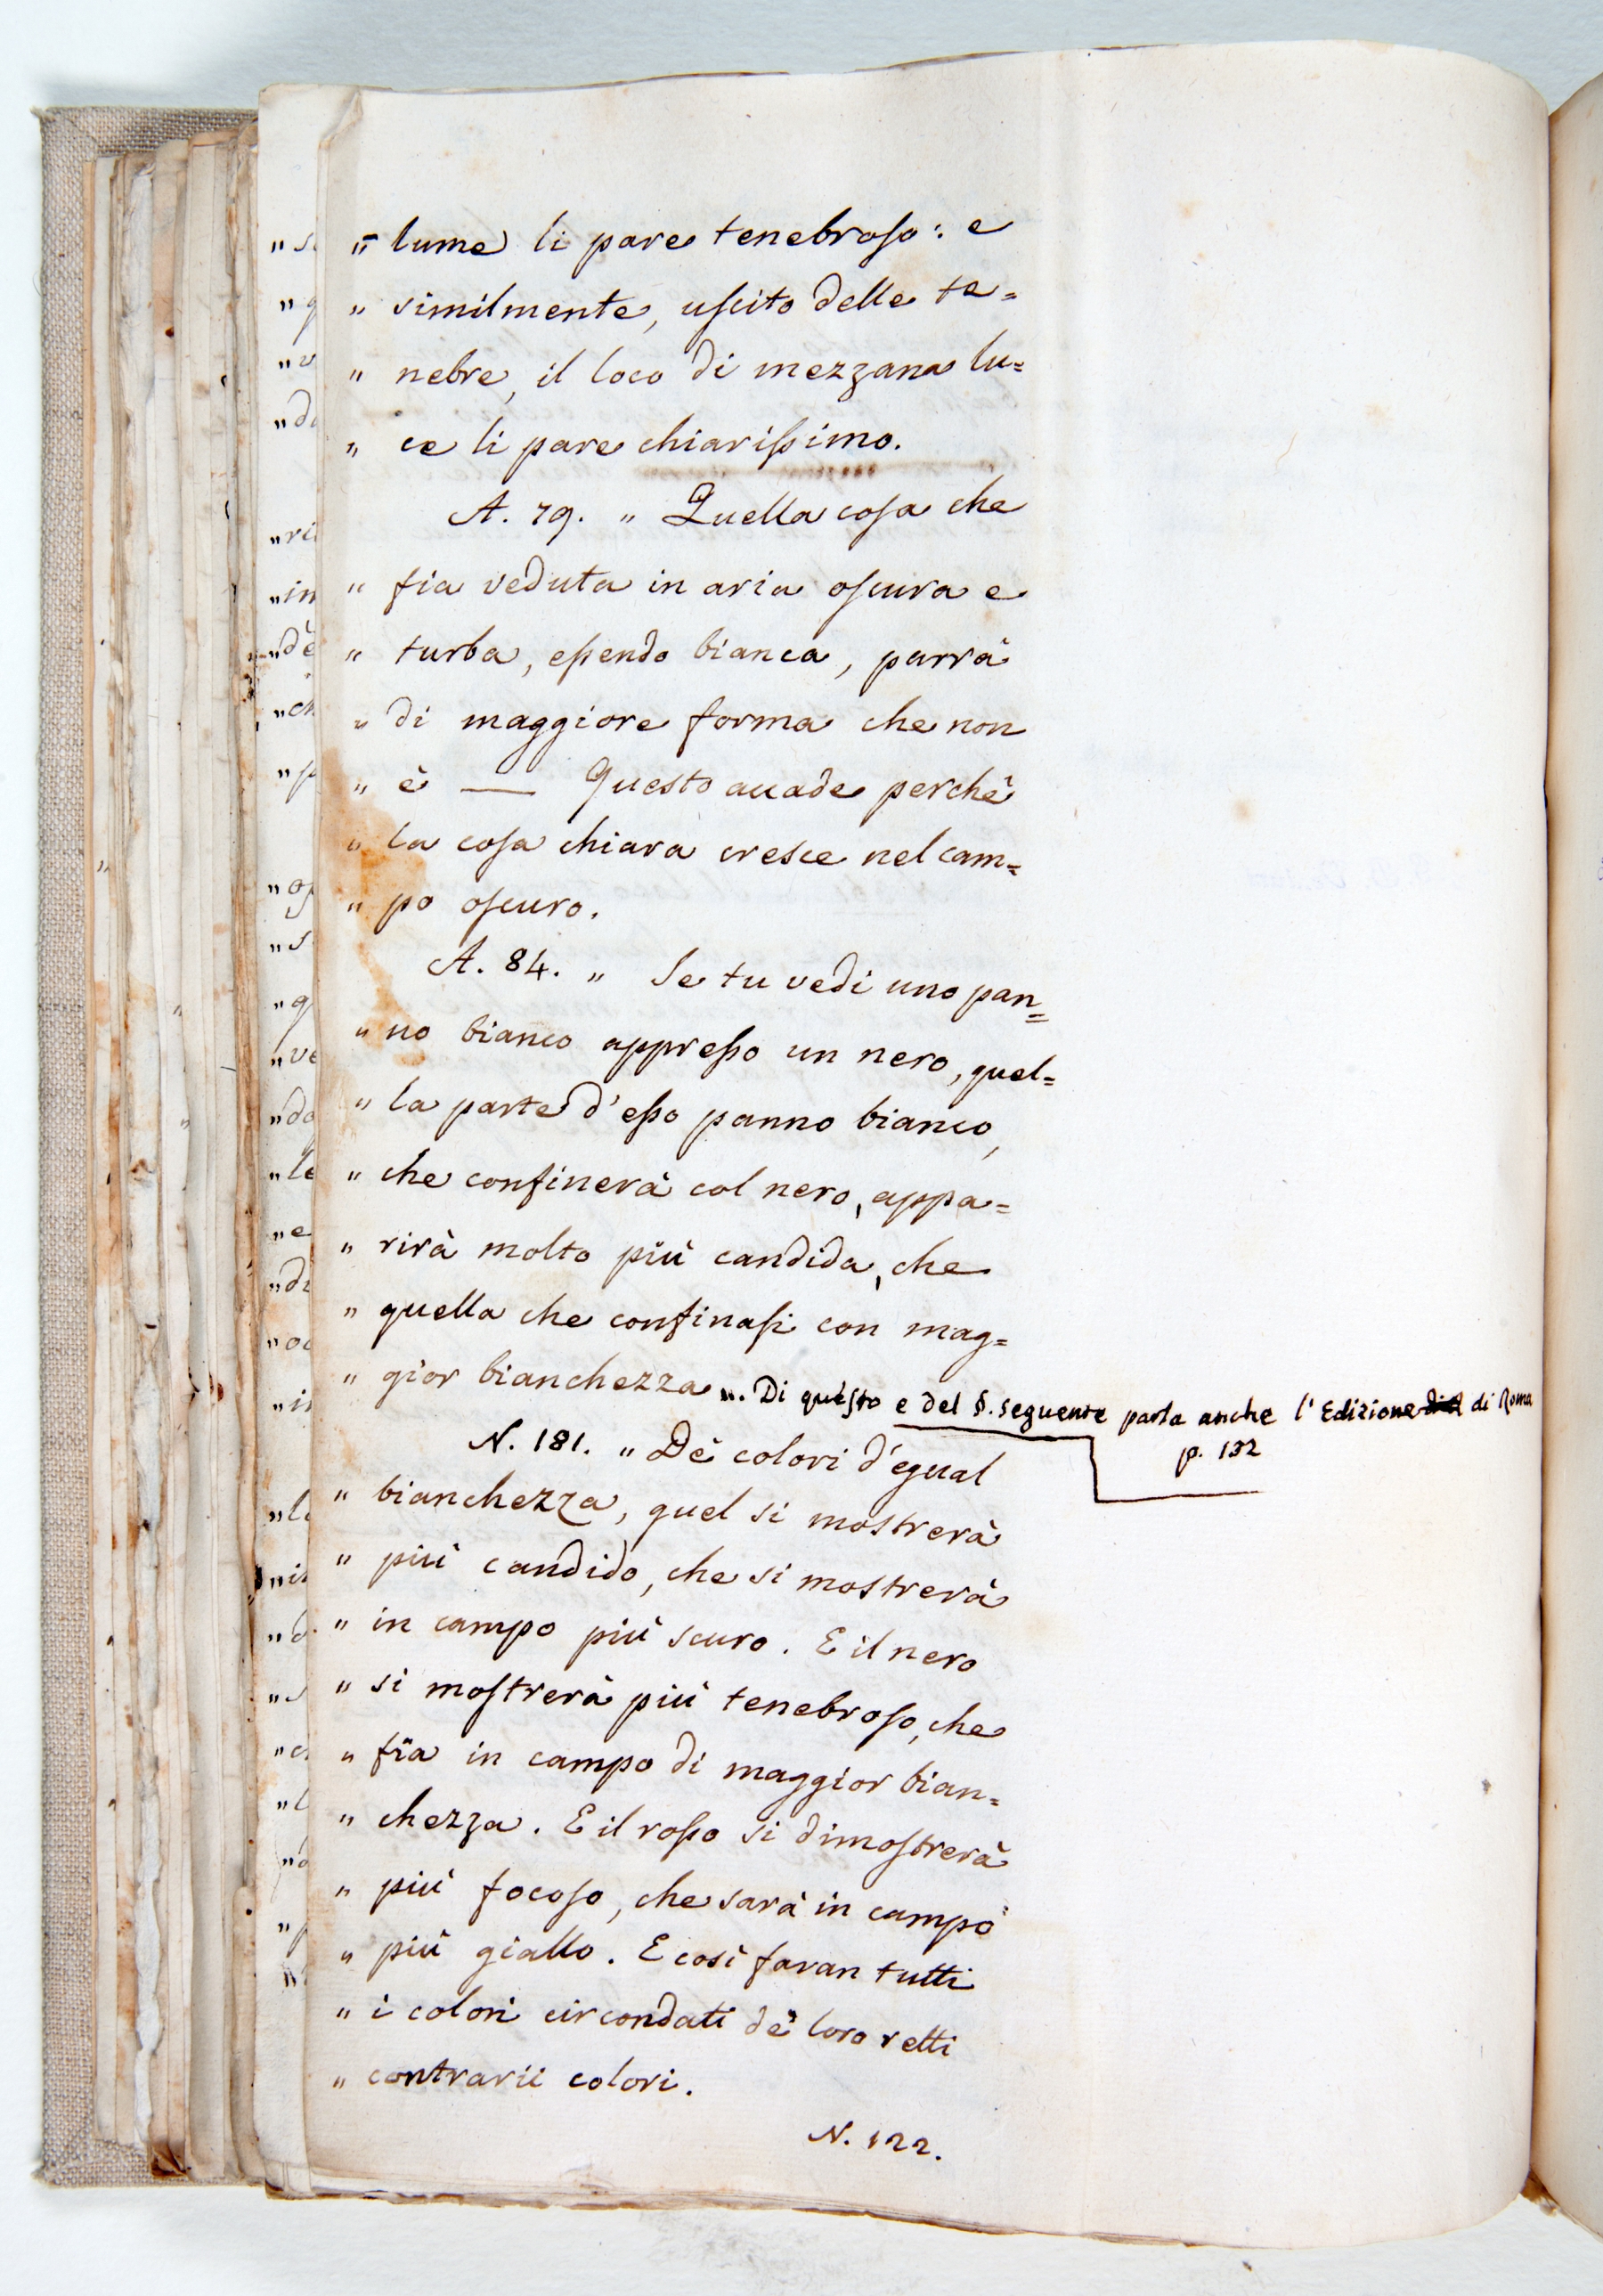 „ lume li pare tenebroso: e
„ similmente, uscito delle te=
„ nebre, il loco di mezzana lu=
„ ce li pare chiarissimo.
A. 79. „ Quella cosa che
„ fia veduta in aria oscura e
„ turba, essendo bianca, parrà
„ di maggiore forma che non
„ è — Questo accade perchè
„ la cosa chiara cresce nel cam=
„ po oscuro.
A. 84. „ Se tu vedi uno pan=
„ no bianco appresso un nero, quel=
„ la parte d'esso panno bianco,
„ che confinerà col nero, appa=
„ rirà molto più candida, che
„ quella che confinasi con mag=
„ gior bianchezza„. Di questo e del §. seguente parla anche l'Edizione di Roma
p. 132
N. 181. „ De' colori d'egual
„ bianchezza, quel si mostrerà
„ più candido, che si mostrerà
„ in campo più scuro. E il nero
„ si mostrerà più tenebroso, che
„ fia in campo di maggior bian=
„ chezza. E il rosso si dimostrerà
„ più focoso, che sarà in campo
„ più giallo. E così faran tutti
„ i colori circondati de' loro retti
„ contrarii colori.
N. 122.